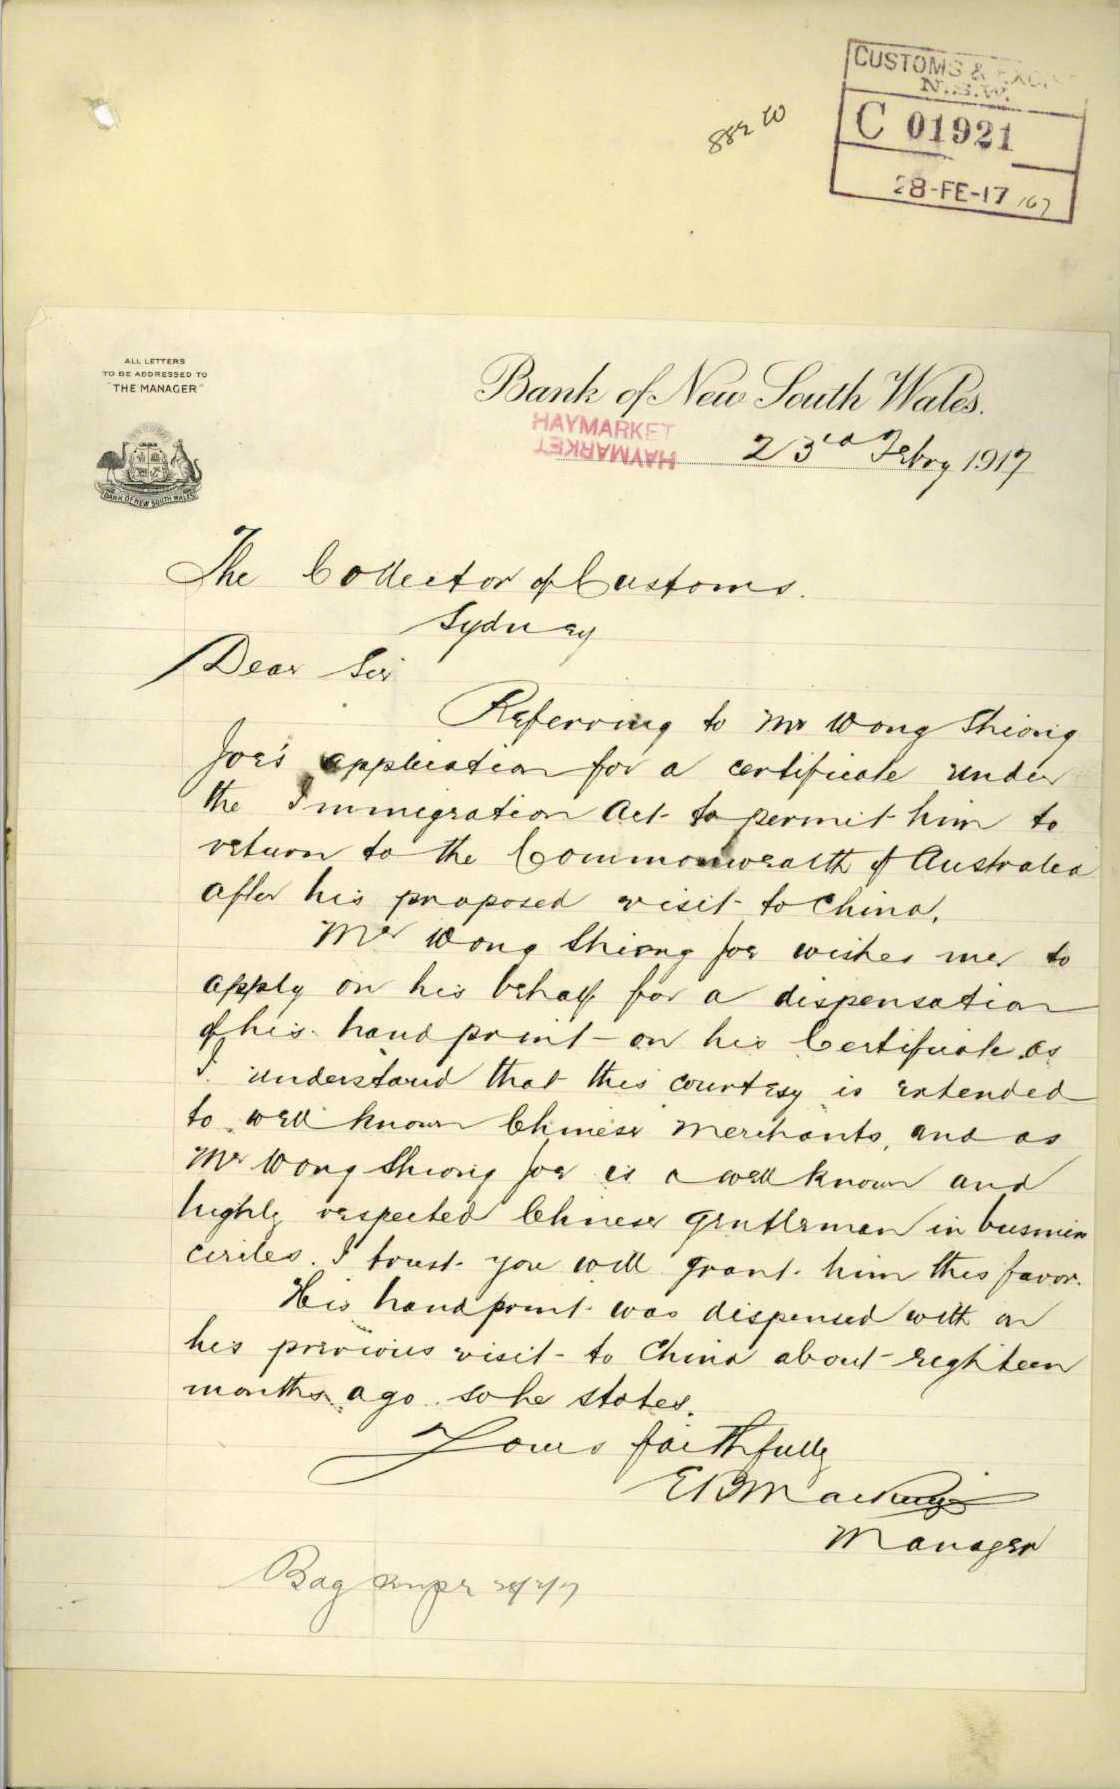 CUSTOMS &
N.S.W.
C 01921
28-FE-17 167
882 W
ALL LETTERS
TO BE ADDRESSED TO
"THE MANAGER"
Bank of New South Wales.
HAYMARKET
HAYMARKET
23rd Febry 1917
BANK OF NEW SOUTH WALES
The Collector of Customs.
Sydney
Dear Sir
Referring to Mr Wong Shiong
Joe's application for a certificate under
the Immigration Act to permit him to
return to the Commonwealth of Australia
after his proposed visit to China.
Mr Wong Shiong Joe wishes me to
apply on his behalf for a dispensation
of his hand print on his Certificate as
I understand that this courtesy is extended
to well known Chinese Merchants, and as
Mr Wong Shiong Joe is a well known and
highly respected Chinese gentleman in business
circles. I trust you will grant him this favor.
His hand print was dispensed with on
his previous visit to China about eighteen
months ago so he states.
Yours faithfully
E B Mackenzie
Manager
Bag